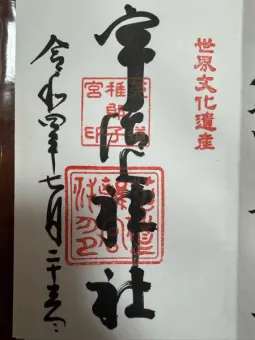 世界文化遺産
宇治上神社
稚郎子
宮印
令和四年七月二十